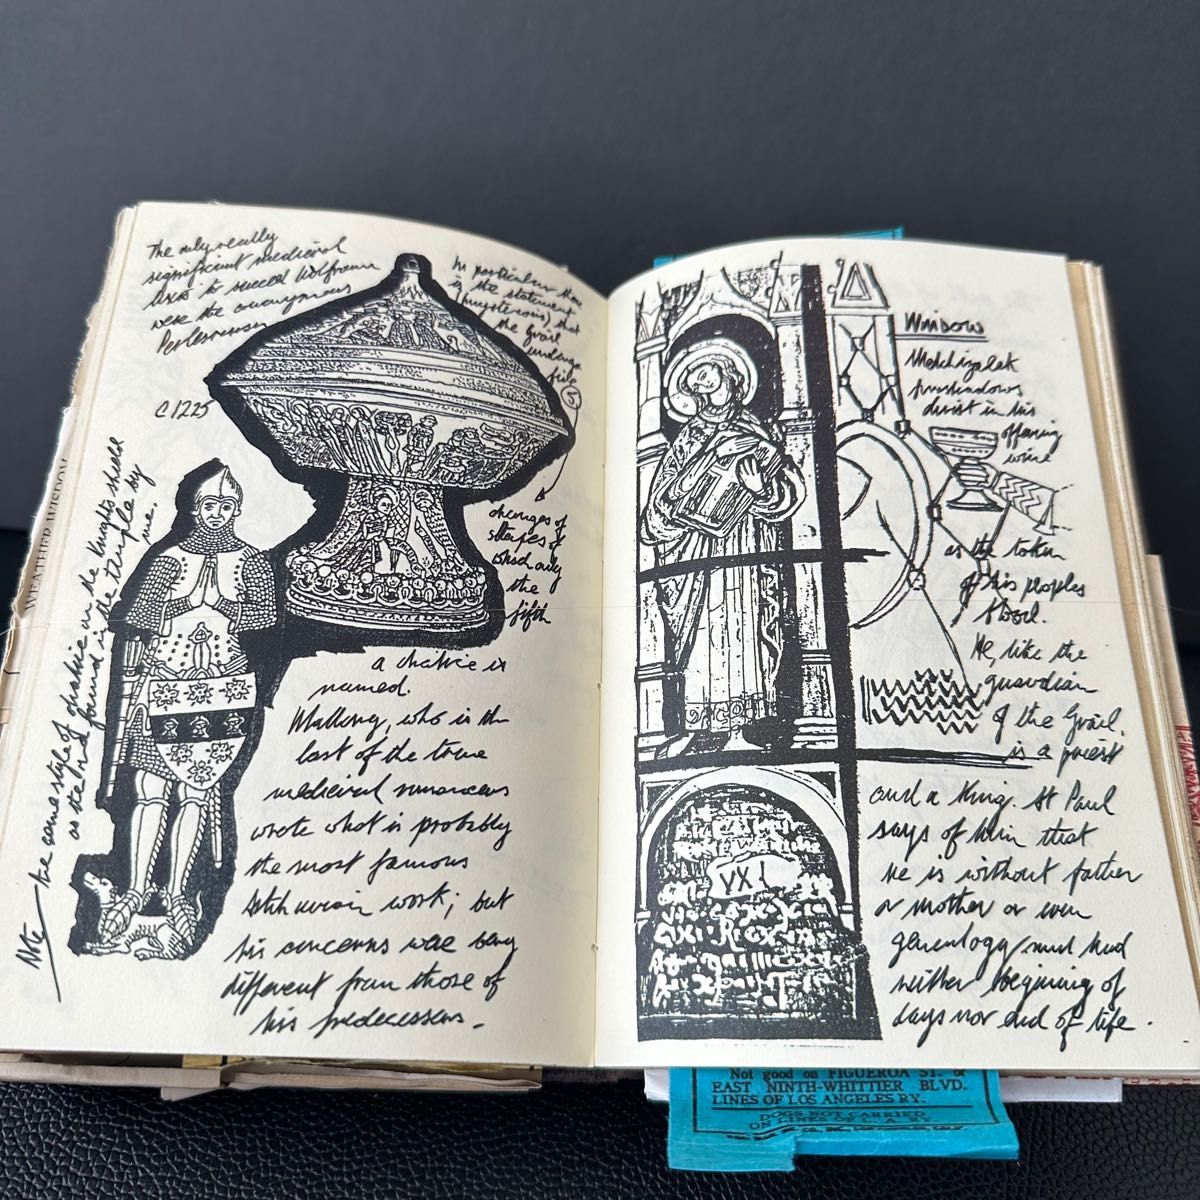 The only really
significant medieval
texts to succeed Wolframs
were the anonymous
Perlesvaus
C 1225
In particular there
is the statement
(mysterious) that
the Grail
undergo
five
5
changes of
shapes of
which only
the
fifth
a chalice is
named.
Mallory, who is the
last of the true
medieval romancers
wrote what is probably
the most famous
Arthurian work; but
his concerns were
different from those of
his predecessors.
Note
the same style of chalice in the knights shield
as the had found in the temple by
me.
WEATHER WISDOM
Window
Melchizedek
foreshadows
christ in his
offering
wine
as the token
of his peoples
He, like the
guardian
of the Grail,
is a priest
and a King. St Paul
says of him that
he is without father
or mother or even
genealogy and had
neither begining of
days nor end of life.
VXI
Not good on FIGUEROA ST. or
EAST NINTH-WHITTIER BLVD.
LINES OF LOS ANGELES RY.
DOGS NOT CARRIED
ON LINES OF L. A. RY.